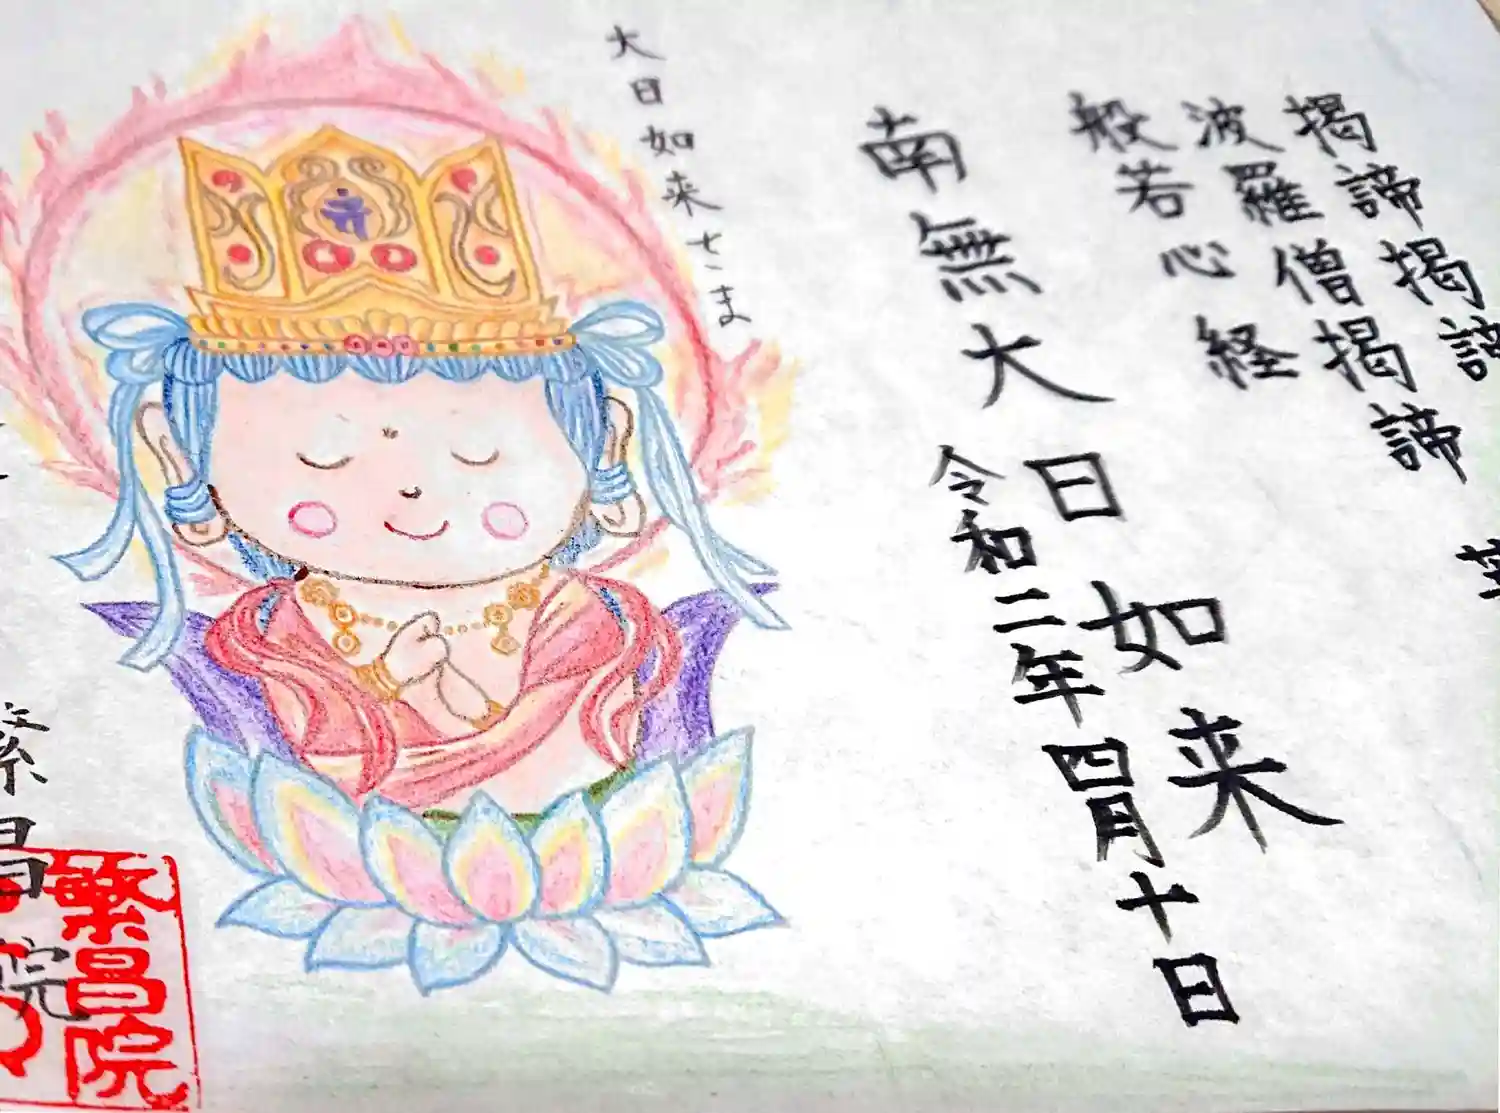 掲諦掲諦
波羅僧掲諦
般若心経
南無大日如来
令和二年四月十日
大日如来さま
繁昌院
繁昌院